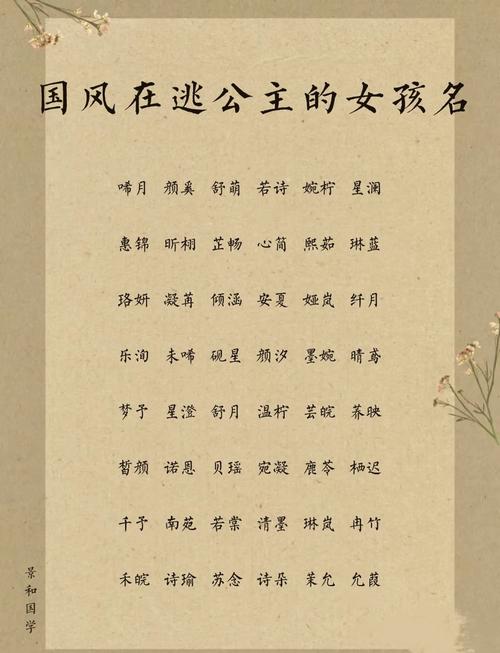 国风在逃公主的女孩名
唏月 颜奚 舒萌 若诗 婉柠 星澜
惠锦 昕栩 芷畅 心简 熙茹 琳蓝
珞妍 凝苒 倾涵 安夏 娅岚 纤月
乐洵 未唏 砚星 颜汐 墨婉 晴鸢
梦予 星澄 舒月 温柠 芸皖 荞映
皙颜 诺恩 贝瑶 宛凝 鹿苓 栖迟
千予 南苑 若棠 清墨 琳岚 冉竹
禾皖 诗瑜 苏念 诗朵 茉允 允葭
景和国学